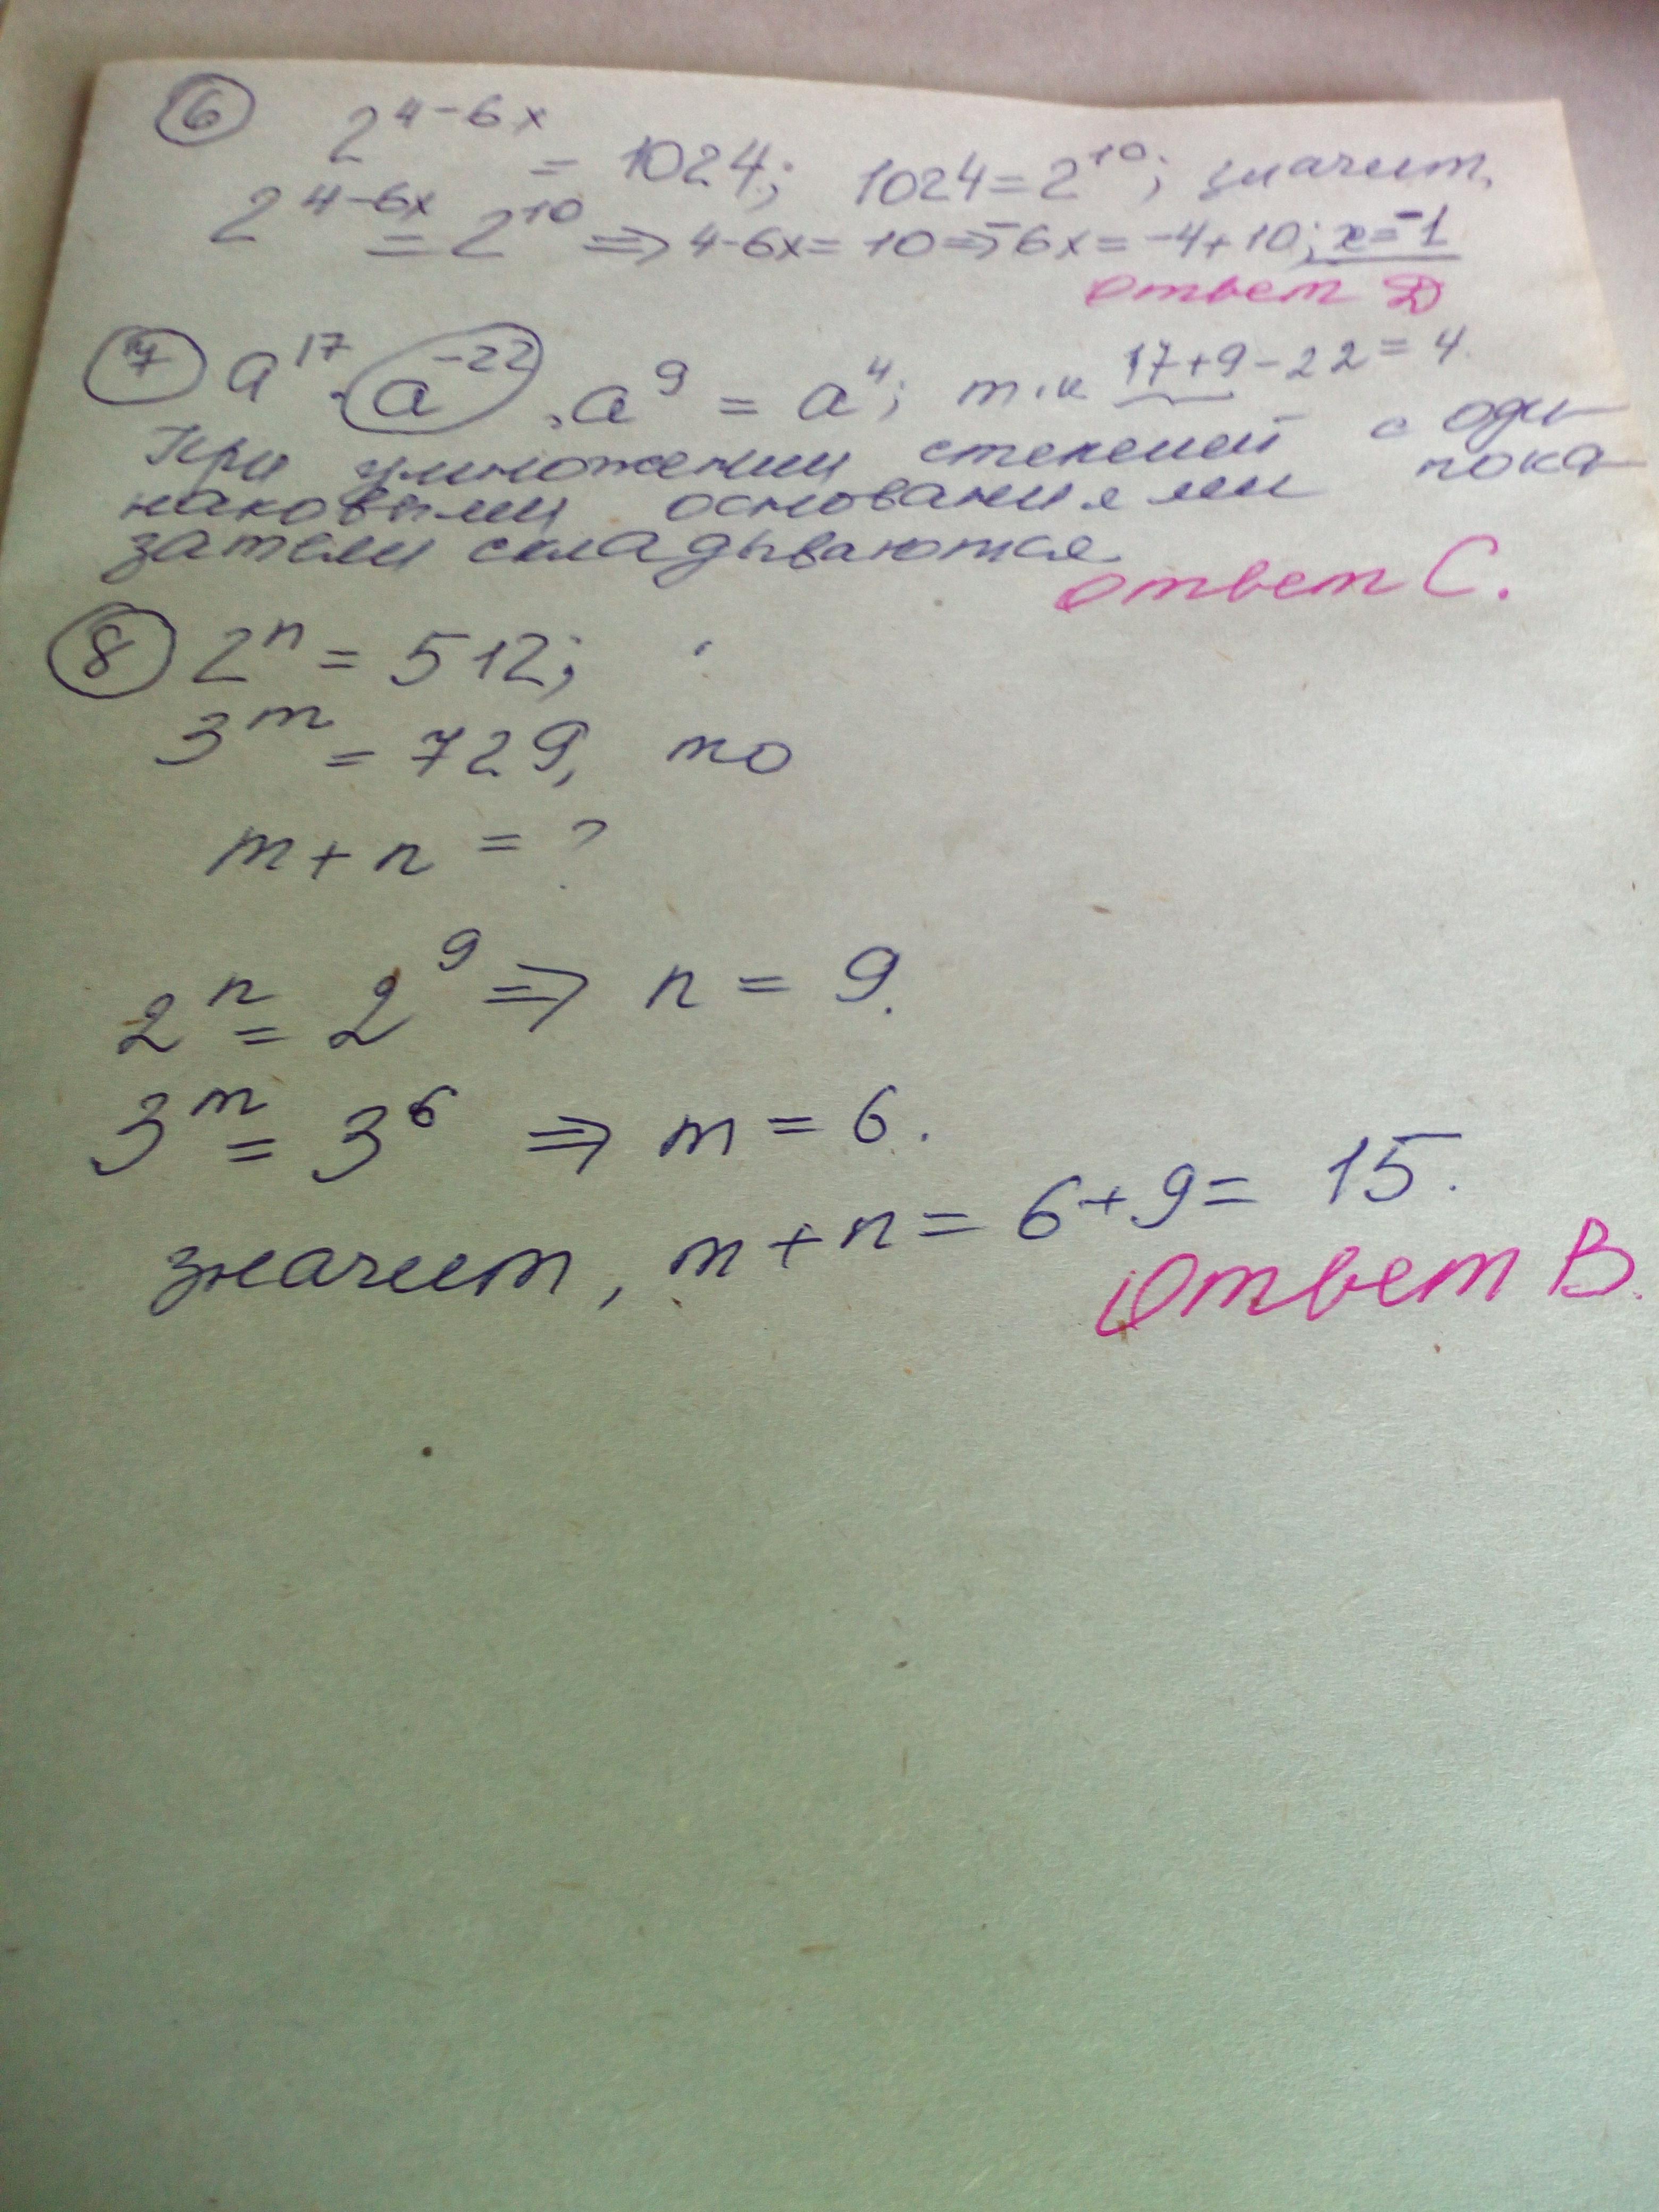 6 2^{4-6x} = 1024; 1024=2^{10}; значит,
2^{4-6x} = 2^{10} ⇒ 4-6x= 10⇒-6x= -4+10; x=-1
ответ D
7 a^{17} · a^{-22} · a^9 = a^4; т.к 17+9-22=4.
При умножении степеней с оди-
наковыми основаниями пока-
затели складываются
ответ C.
8 2^n = 512;
3^m = 729, то
m+n = ?
2^n = 2^9 ⇒ n = 9.
3^m = 3^6 ⇒ m = 6.
значит, m+n= 6+9= 15.
Ответ B.